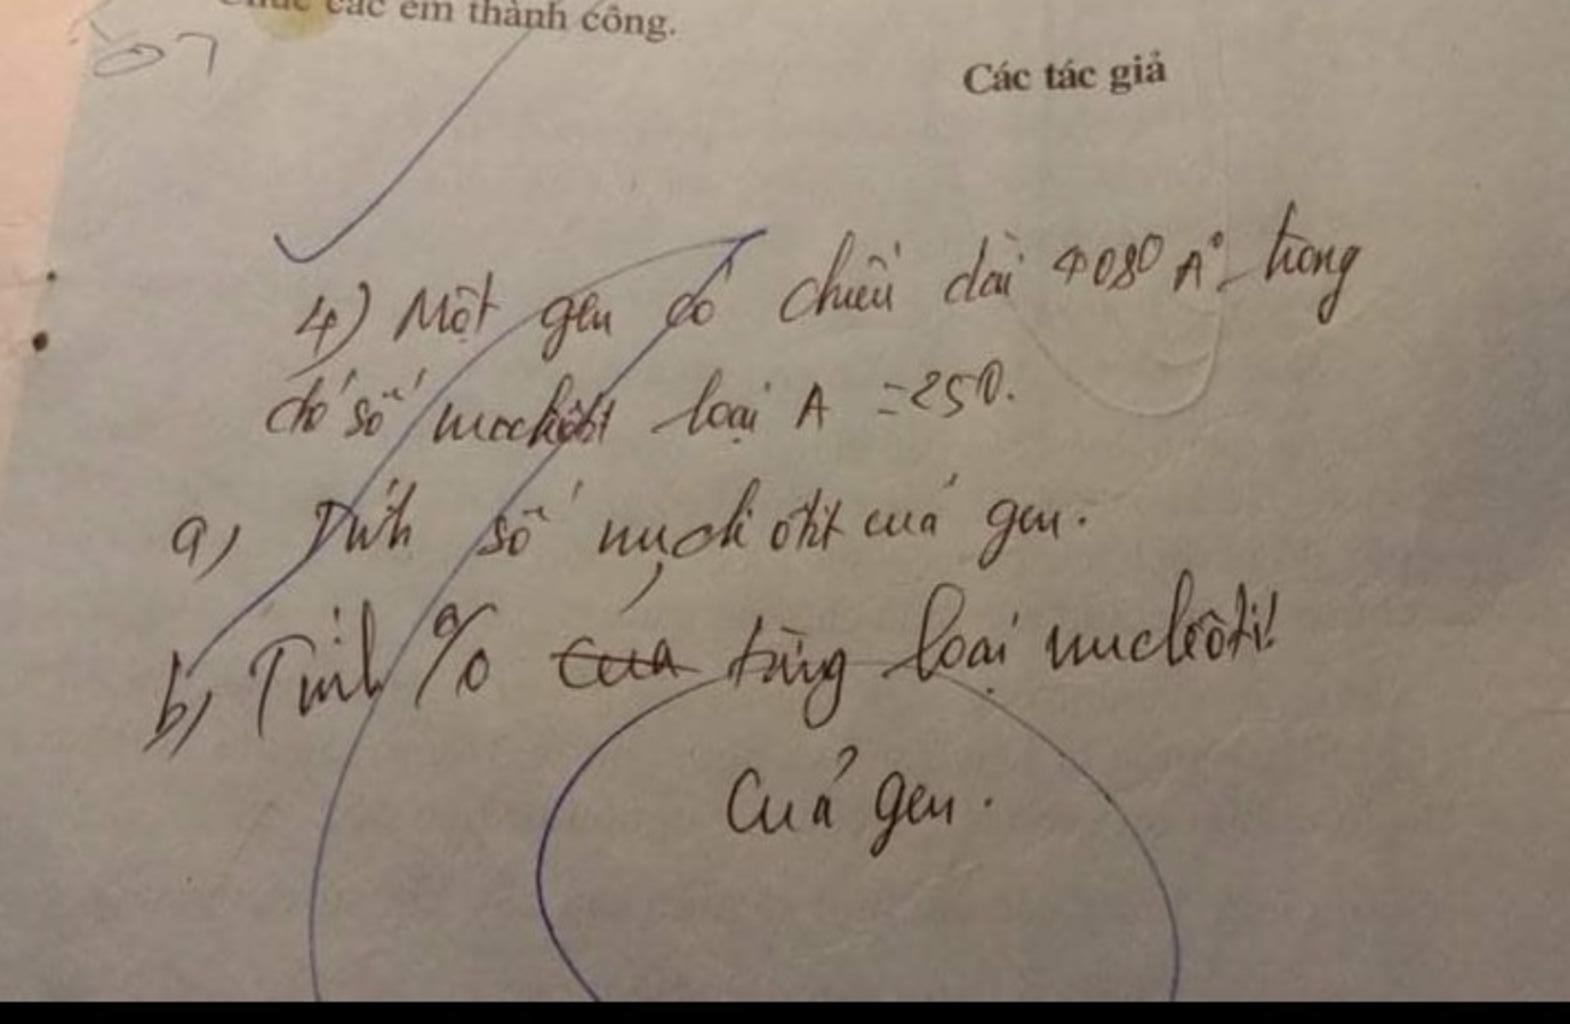 Chúc các em thành công.
07
Các tác giả
4) Một gen có chiều dài 4080 A° trong
đó số nucleôtit loại A = 250.
a, Tính số nuclêôtit của gen.
b, Tính % của từng loại nuclêôtit
của gen.